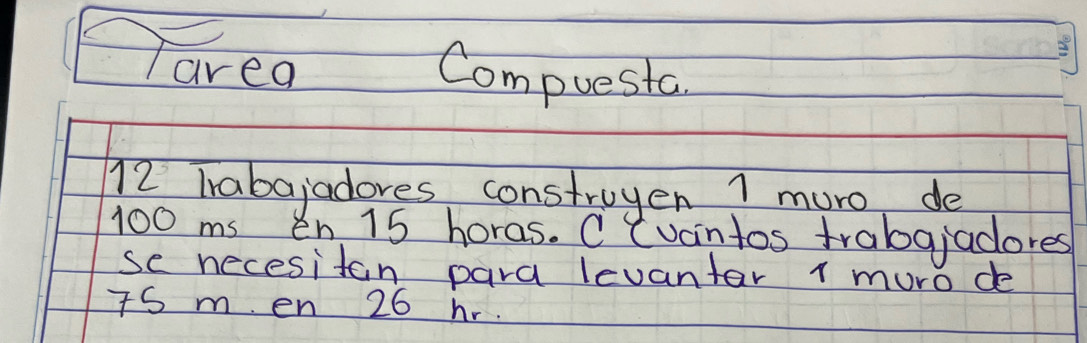 Tarea Compuesta.
12 Trabajadores construyen 1 muro de
100 ms en 15 horas. C Cuántos trabajadores
se necesitan para levantar 1 muro de
75 m. en 26 hr.